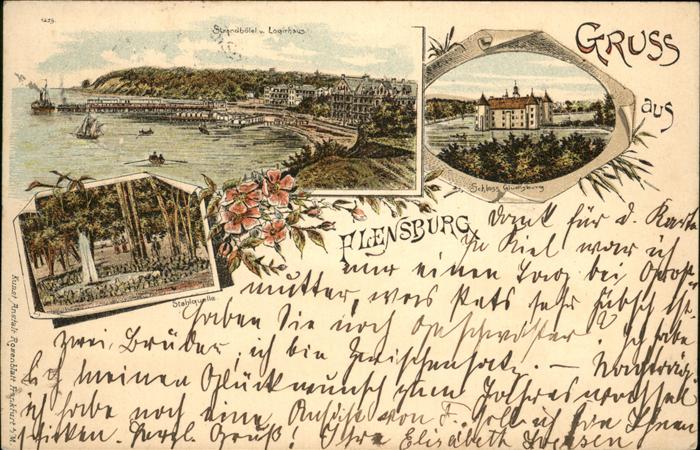 1225.
Strandhôtel u. Logirhaus
GRUSS
aus
Schloss Glücksburg
FLENSBURG
Stahlquelle
Kunst. Anstalt Rosenblatt Frankfurt a/M.
Dank für d. Karte
In Kiel war ich
nur einen Tag bei Groß-
mutter, was stets sehr hübsch ist.
Haben Sie noch Geschwister? Ich habe
zwei Brüder, ich bin Zwischensatz. — Nachträg-
lich meinen Glückwunsch zum Jahreswechsel
ich habe noch eine Ansicht von F. soll ich sie Ihnen
schicken. Herzl. Gruß! Ihre Elisabeth